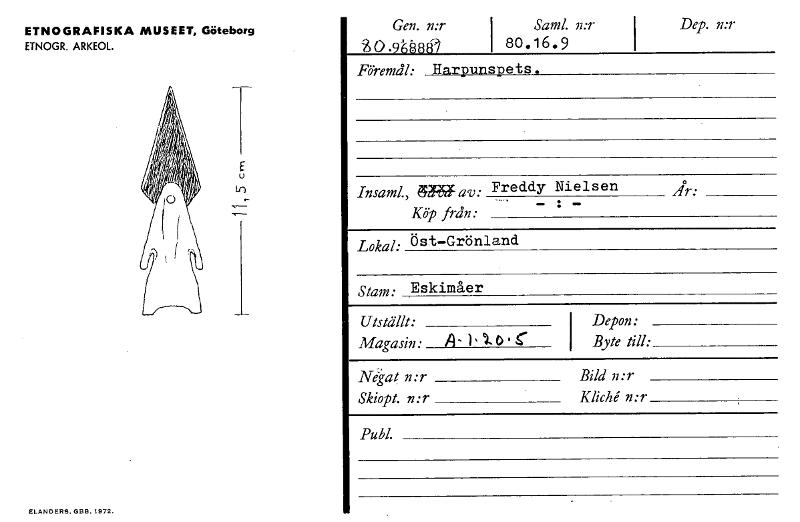 ETNOGRAFISKA MUSEET, Göteborg
ETNOGR. ARKEOL.
11,5 cm
ELANDERS, GBB, 1972.
Gen. n:r Saml. n:r Dep. n:r
80.16.9
Föremål: Harpunspets.
Insaml., av: Freddy Nielsen År:
Köp från: - : -
Lokal: Öst-Grönland
Stam: Eskimåer
Utställt: Depon:
Magasin: A·1·20·5 Byte till:
Negat n:r Bild n:r
Skiopt. n:r Kliché n:r
Publ.